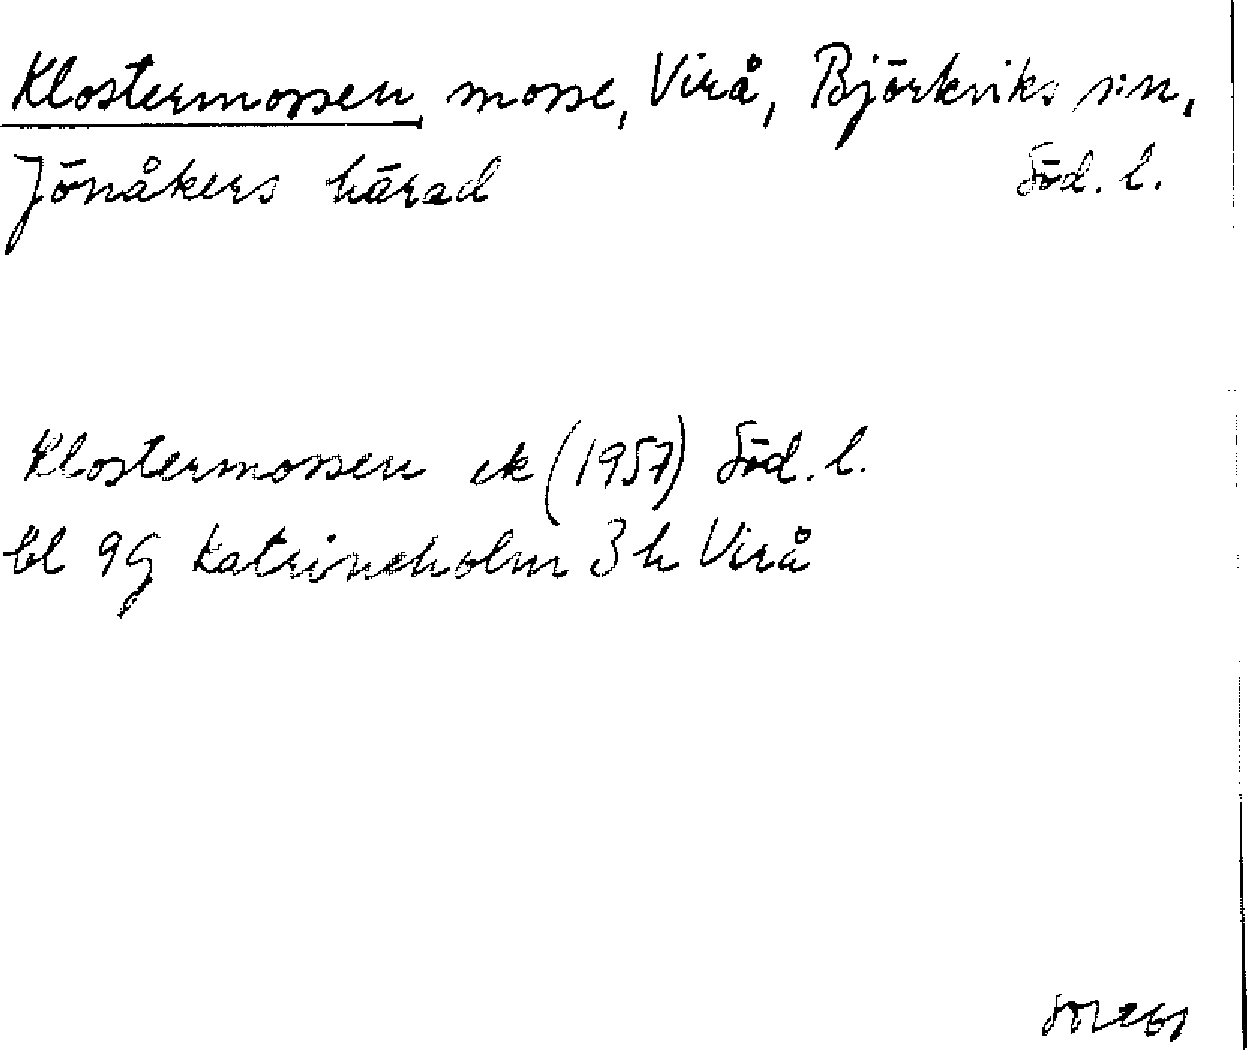 Klostermossen, mosse, Virå, Björkviks s:n,
Jönåkers härad Söd. l.
Klostermossen ek (1957) Söd. l.
bl 9G Katrineholm 3 h Virå